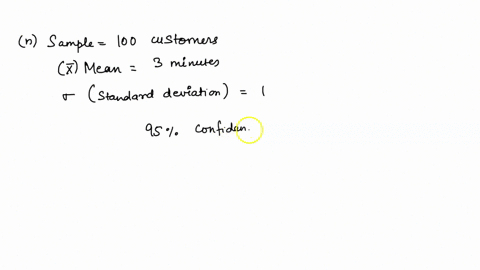 (n) Sample = 100 customers
(x̄) Mean = 3 minutes
σ (Standard deviation) = 1
95% Confidan.